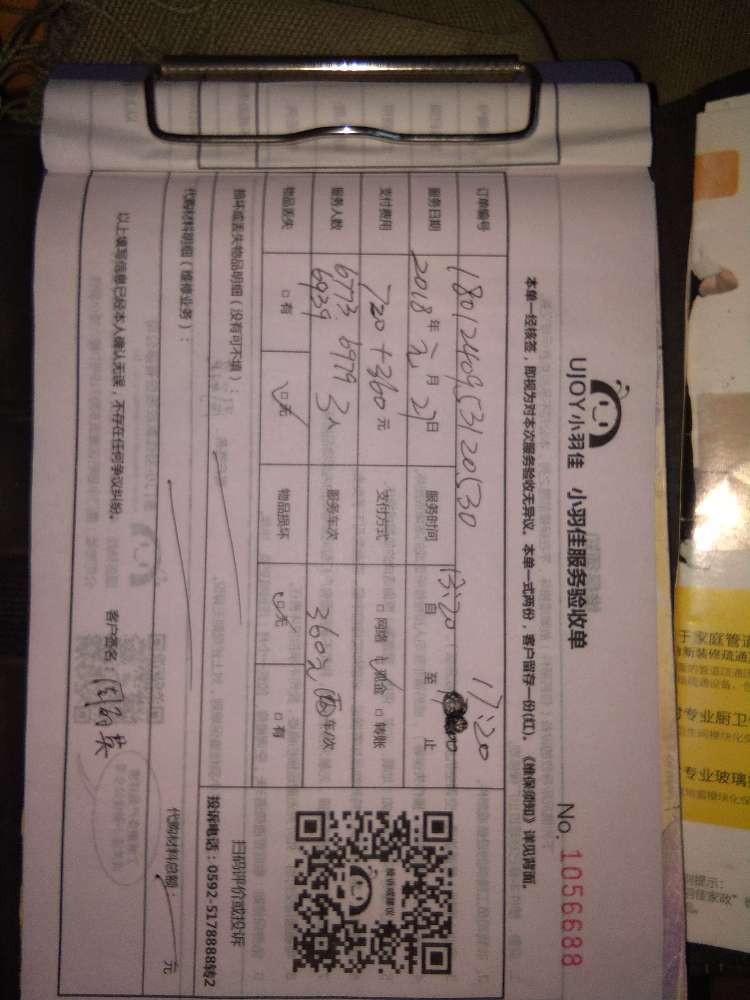 UJOY小羽佳 小羽佳服务验收单
No. 1056688
本单一经核签，即视为对本次服务验收无异议。本单一式两份，客户留存一份(红)。《维保须知》详见背面。
订单编号 1801240953120530
服务日期 2018年元月27日 服务时间 13:20 自 至 17:20 止
支付费用 720+360元 支付方式 □网络 ☑现金 □转账
服务人数 6773 6979 6939 3人 服务车次 360元 车/次
物品丢失 □有 ☑无 物品损坏 ☑无 □有
损坏或丢失物品明细（没有可不填）：
扫码评价或投诉
投诉电话：0592-5178888转2
投诉或建议
代购材料明细（维修业务）：
代购材料总额： 元
以上填写信息已经本人确认无误，不存在任何争议纠纷。 客户签名：
于家庭管道
专业厨卫
专业玻璃